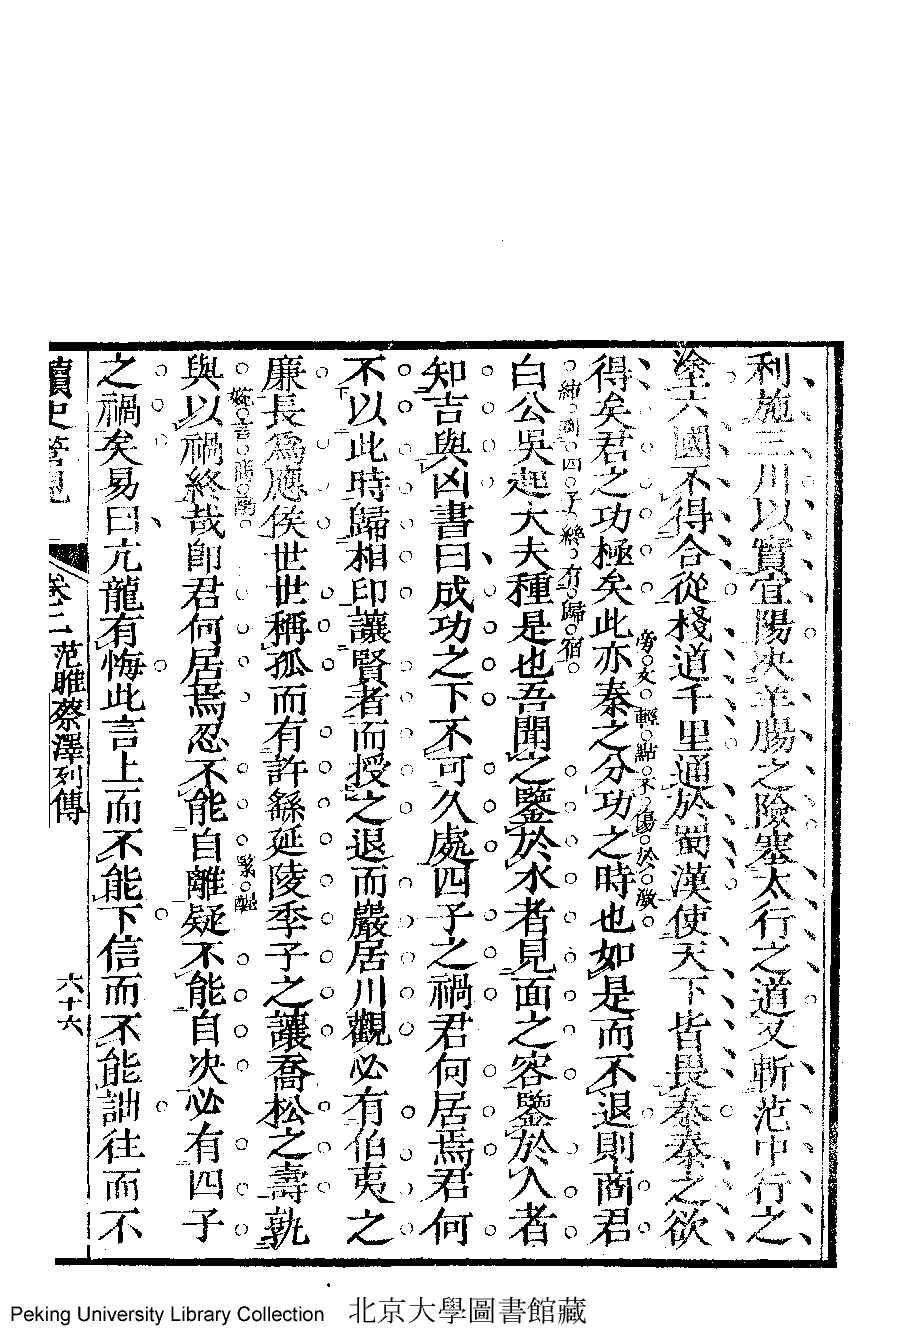 利施三川以實宜陽决羊腸之險塞太行之道又斬范中行之
塗六國不得合從棧道千里通於蜀漢使天下皆畏秦秦之欲
旁文輕點不傷於激
得矣君之功極矣此亦秦之分功之時也如是而不退則商君
四子纔有歸宿
白公吳起大夫種是也吾聞之鑒於水者見面之容鑒於人者
知吉與凶書曰成功之下不可久處四子之禍君何居焉君何
不以此時歸相印讓賢者而授之退而巖居川觀必有伯夷之
廉長爲應侯世世稱孤而有許繇延陵季子之讓喬松之壽孰
緊醒
與以禍終哉卽君何居焉忍不能自離疑不能自决必有四子
之禍矣易曰亢龍有悔此言上而不能下信而不能詘往而不
讀史管見
卷二
范雎蔡澤列傳
六十六
Peking University Library Collection 北京大學圖書館藏